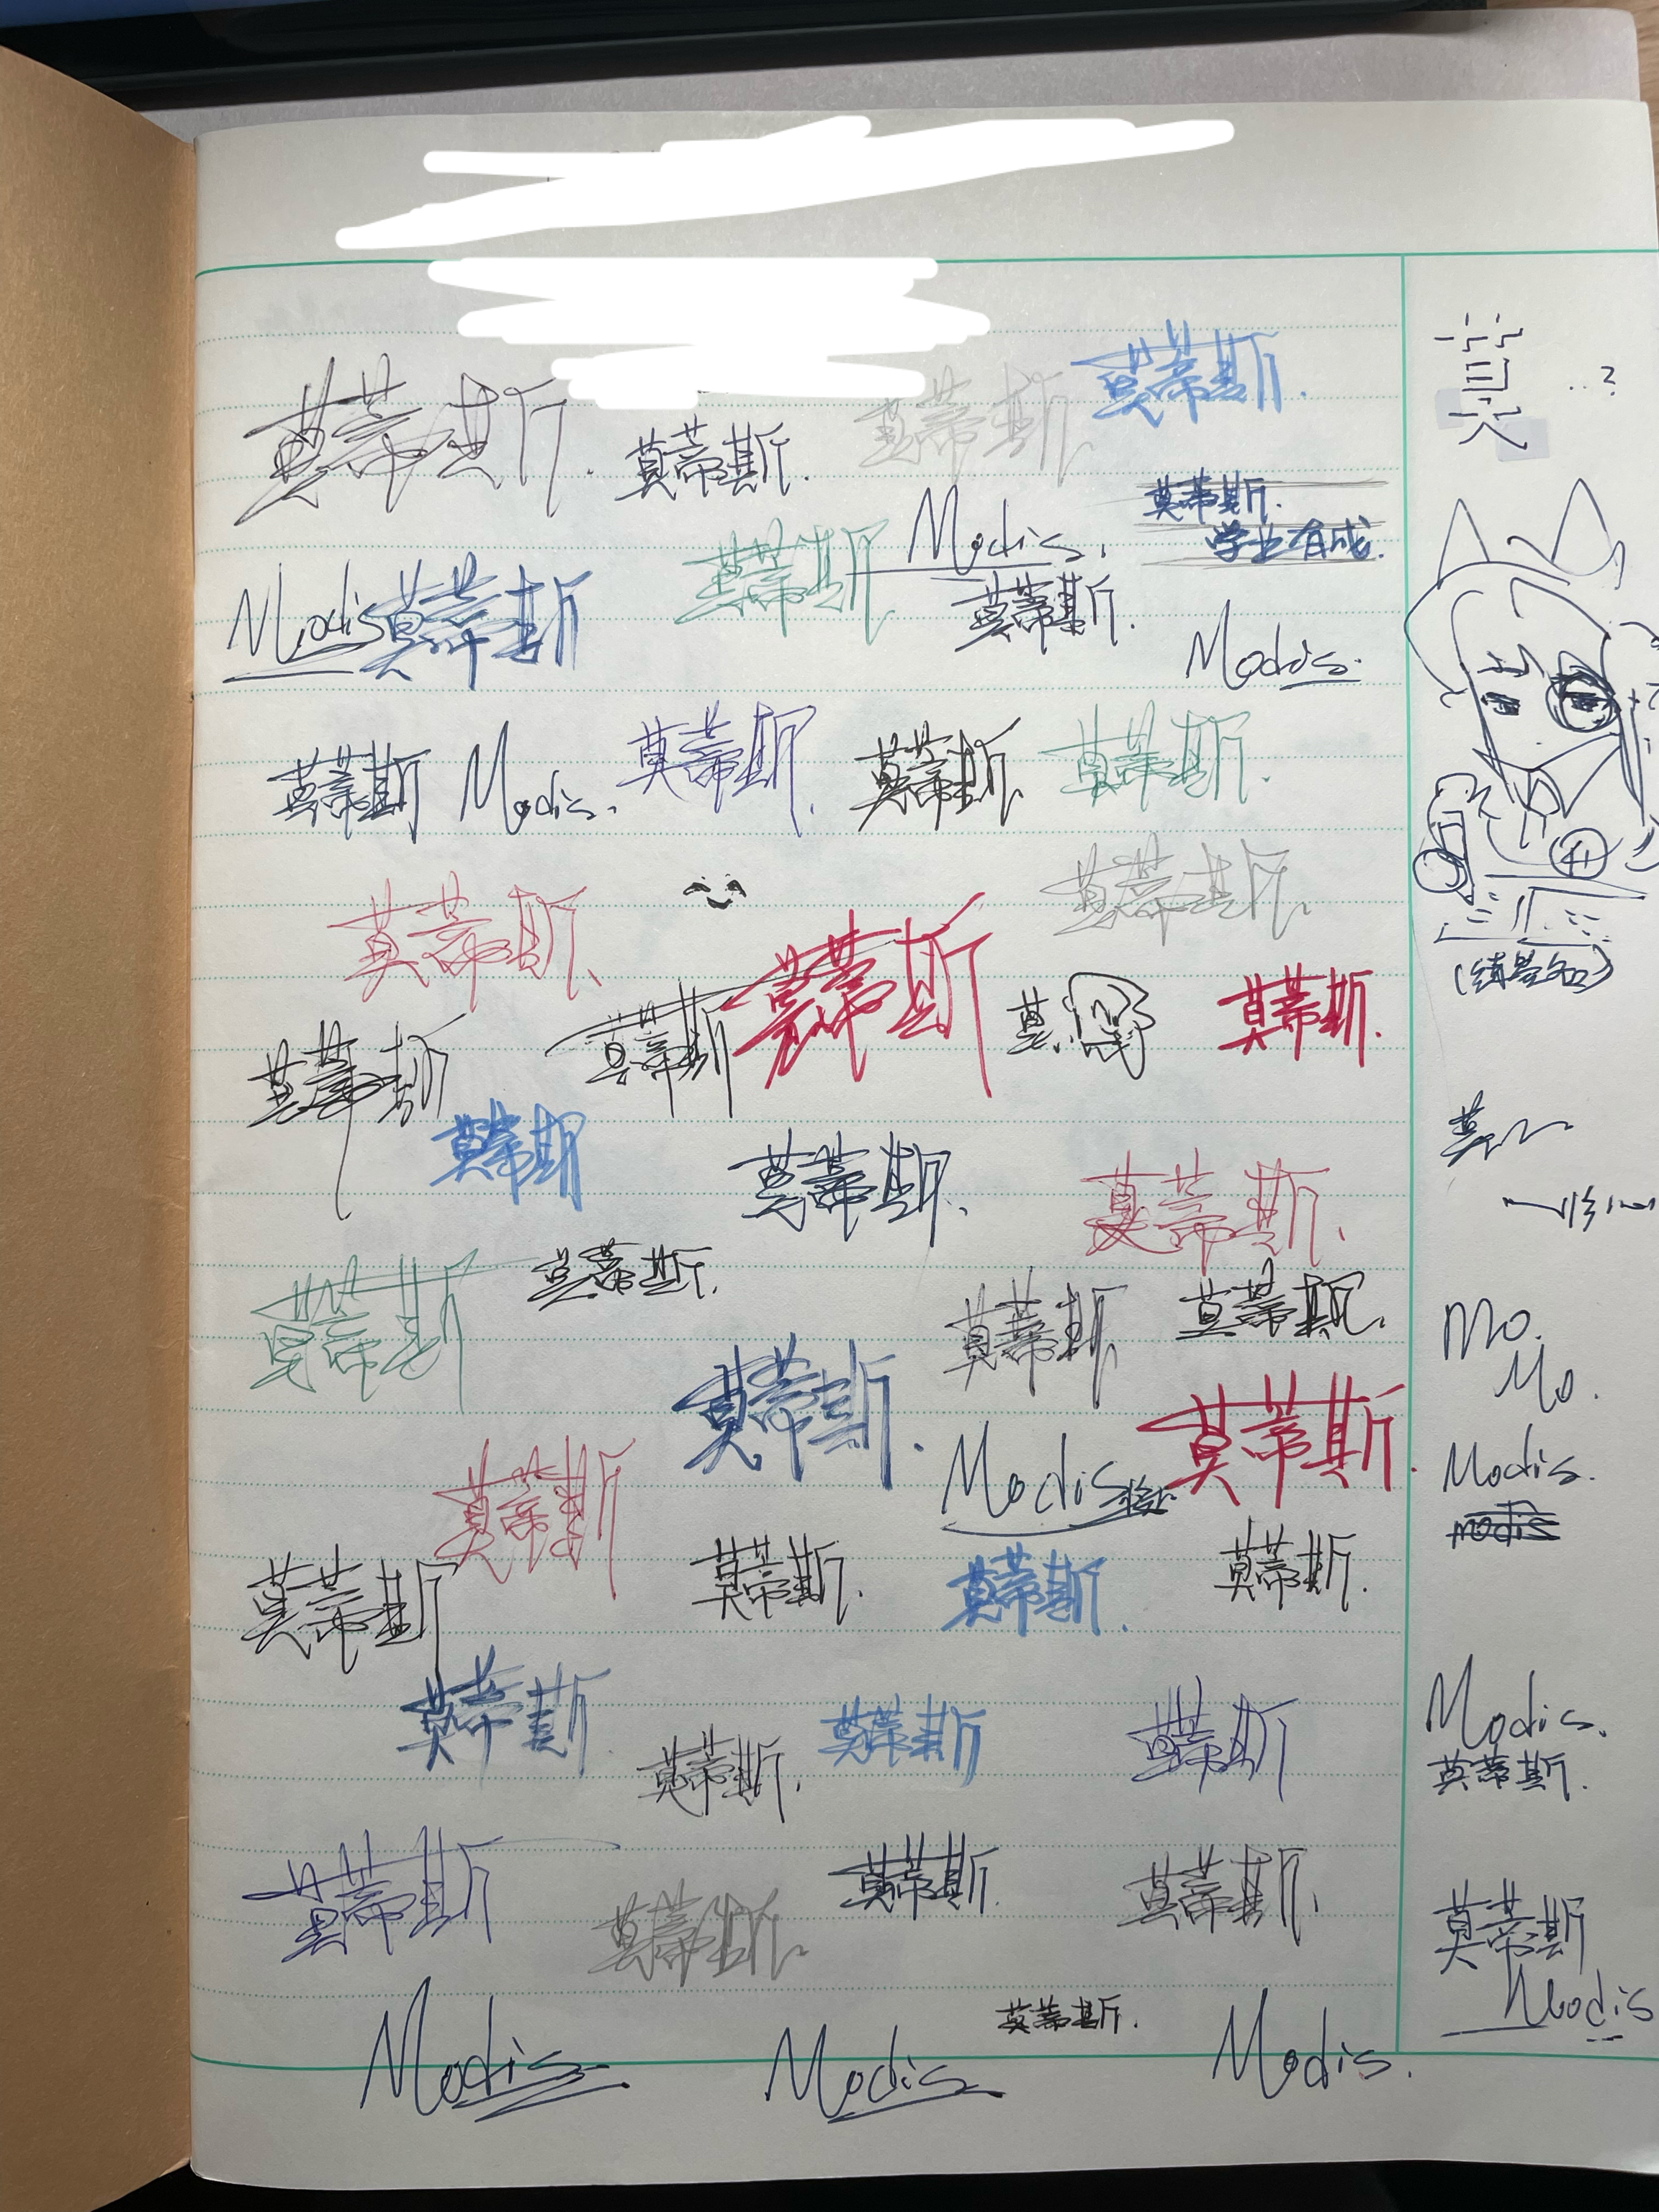 莫蒂斯
莫蒂斯.
莫蒂斯.
莫蒂斯.
莫 ..?
莫蒂斯.
学业有成.
Modis.
莫蒂斯.
莫蒂斯
Modis
莫蒂斯
Modis.
莫蒂斯
Modis.
莫蒂斯.
莫蒂斯
莫蒂斯.
莫蒂斯.
莫蒂斯.
(练签名)
莫蒂斯
莫蒂斯
莫蒂斯
莫.
莫蒂斯.
莫蒂斯
莫蒂斯.
莫蒂斯.
莫
莫蒂斯
莫蒂斯.
莫蒂斯
莫蒂斯.
Mo.
Mo.
莫蒂斯.
莫蒂斯.
Modis
Modis.
modis
莫蒂斯
莫蒂斯
莫蒂斯.
莫蒂斯.
莫蒂斯.
莫蒂斯
莫蒂斯.
莫蒂斯
莫蒂斯
Modis.
莫蒂斯.
莫蒂斯
莫蒂斯.
莫蒂斯.
莫蒂斯.
莫蒂斯
Modis
Modis
Modis
莫蒂斯.
Modis.